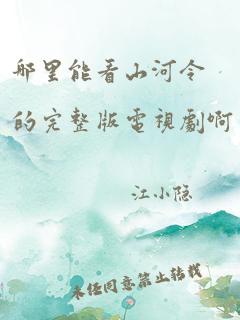 那里能看山河令
的完整版電視劇啊
江小隐
未经同意禁止转载